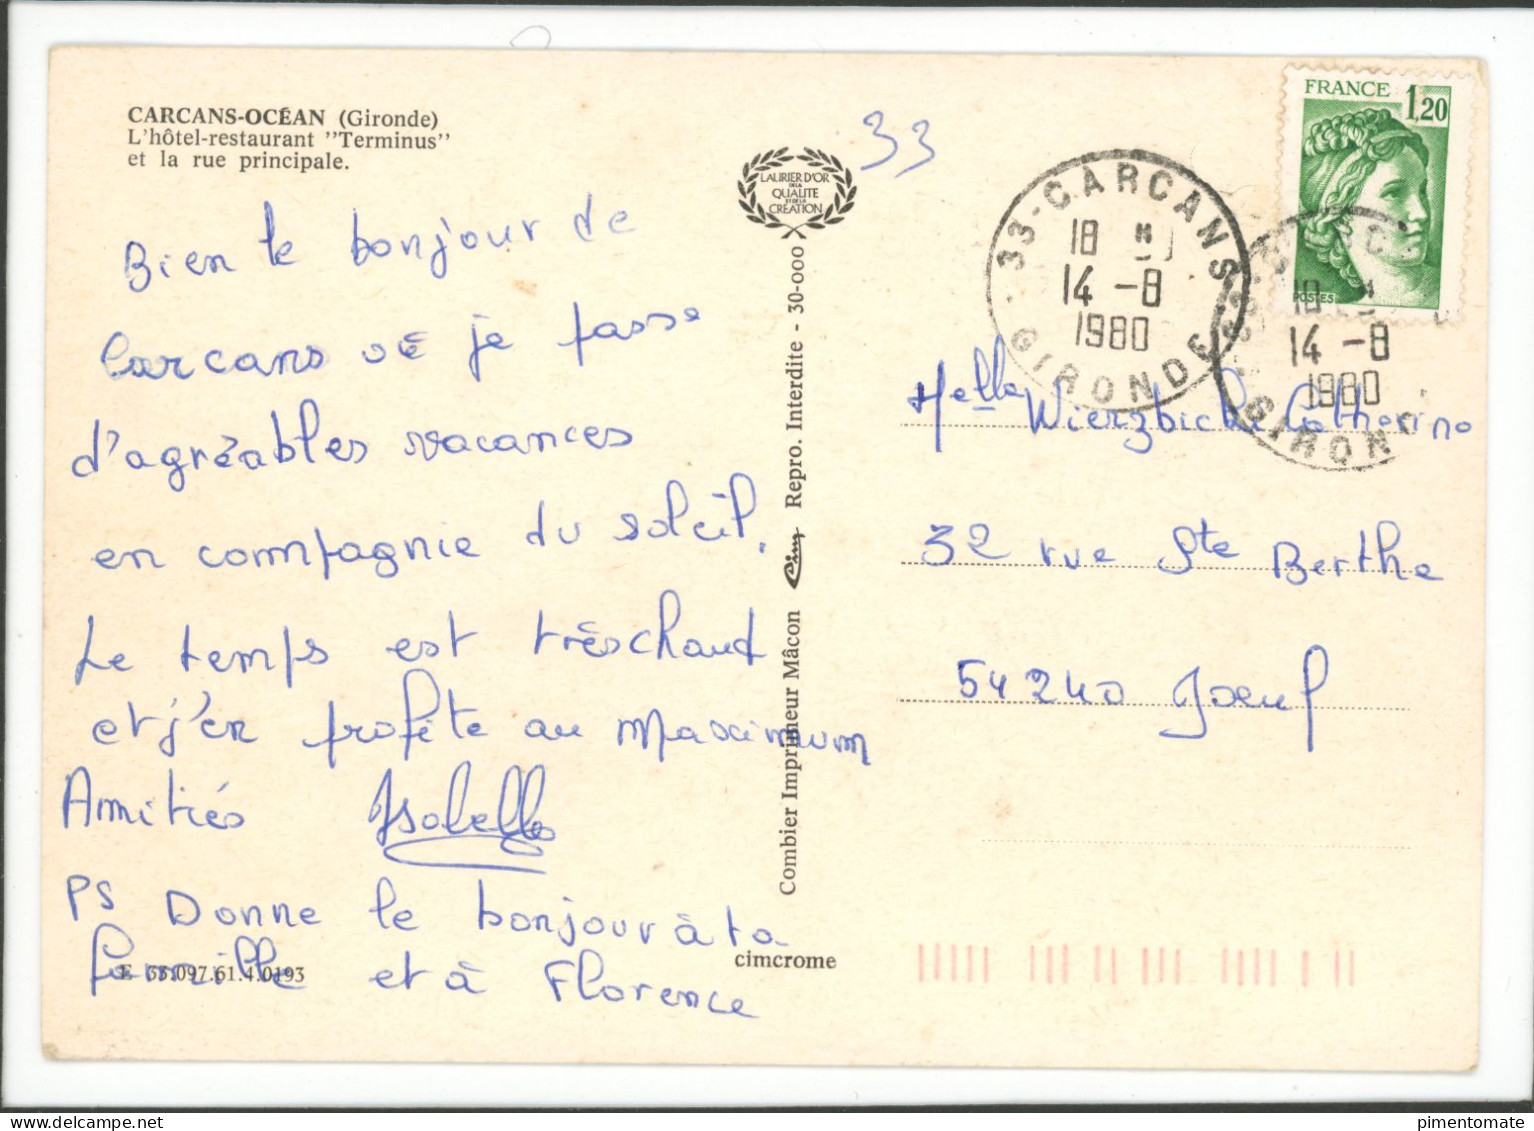 CARCANS-OCÉAN (Gironde)
L'hôtel-restaurant "Terminus"
et la rue principale.
Bien le bonjour de
Carcans où je passe
d'agréables vacances
en compagnie du soleil.
Le temps est très chaud
et j'en profite au maximum
Amitiés Isabelle
PS Donne le bonjour à ta
famille et à Florence
E 33.097.61.4.0193
cimcrome
LAURIER D'OR
DE LA
QUALITE
ET DE LA
CRÉATION
Combier Imprimeur Mâcon Cim Repro. Interdite - 30-000
33
33-CARCANS
18 H
14 -8
1980
GIRONDE
FRANCE 1,20
POSTES
14 -8
1980
Melle Catherine
32 rue Ste Berthe
54240 Joeuf
pimentomate